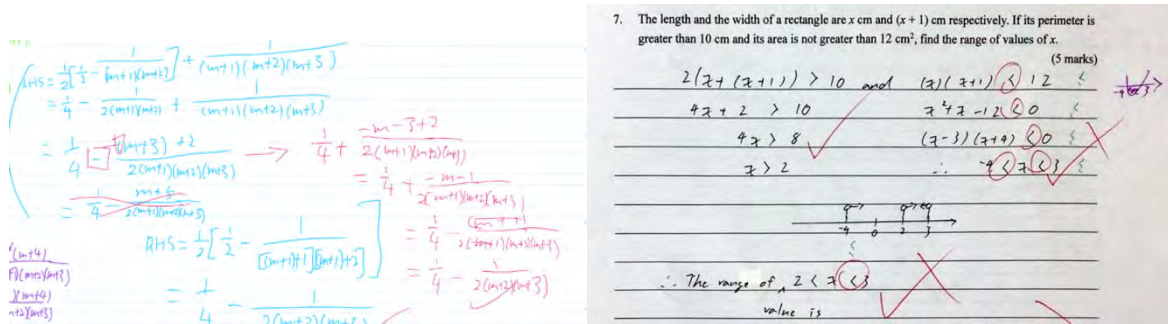 LHS = 1/2[1/2 - 1/((m+1)(m+2))] + 1/((m+1)(m+2)(m+3))
= 1/4 - 1/(2(m+1)(m+2)) + 1/((m+1)(m+2)(m+3))
= 1/4 - ((m+3)+2)/(2(m+1)(m+2)(m+3)) → 1/4 + (-m-3+2)/(2(m+1)(m+2)(m+3))
= 1/4 - (m+5)/(2(m+1)(m+2)(m+3))
= 1/4 + (-m-1)/(2(m+1)(m+2)(m+3))
RHS = 1/2[1/2 - 1/([(m+1)+1][(m+1)+2])]
= 1/4 - (m+1)/(2(m+1)(m+2)(m+3))
= 1/4 - 1/(2(m+2)(m+3))
= 1/4 - 1/(2(m+2)(m+3))
(m+4)
(m+2)(m+3)
(m+4)
m+2)(m+3)
7. The length and the width of a rectangle are x cm and (x + 1) cm respectively. If its perimeter is
greater than 10 cm and its area is not greater than 12 cm², find the range of values of x.
(5 marks)
2(x+(x+1)) > 10 and (x)(x+1) < 12 ≤
4x + 2 > 10 x²+x-12 < 0 ≤
4x > 8 (x-3)(x+4) < 0 ≤
x > 2 ∴ -4 < x < 3 ≤
-4 0 2 3
≤
∴ The range of ^ 2 < x < 3
value is